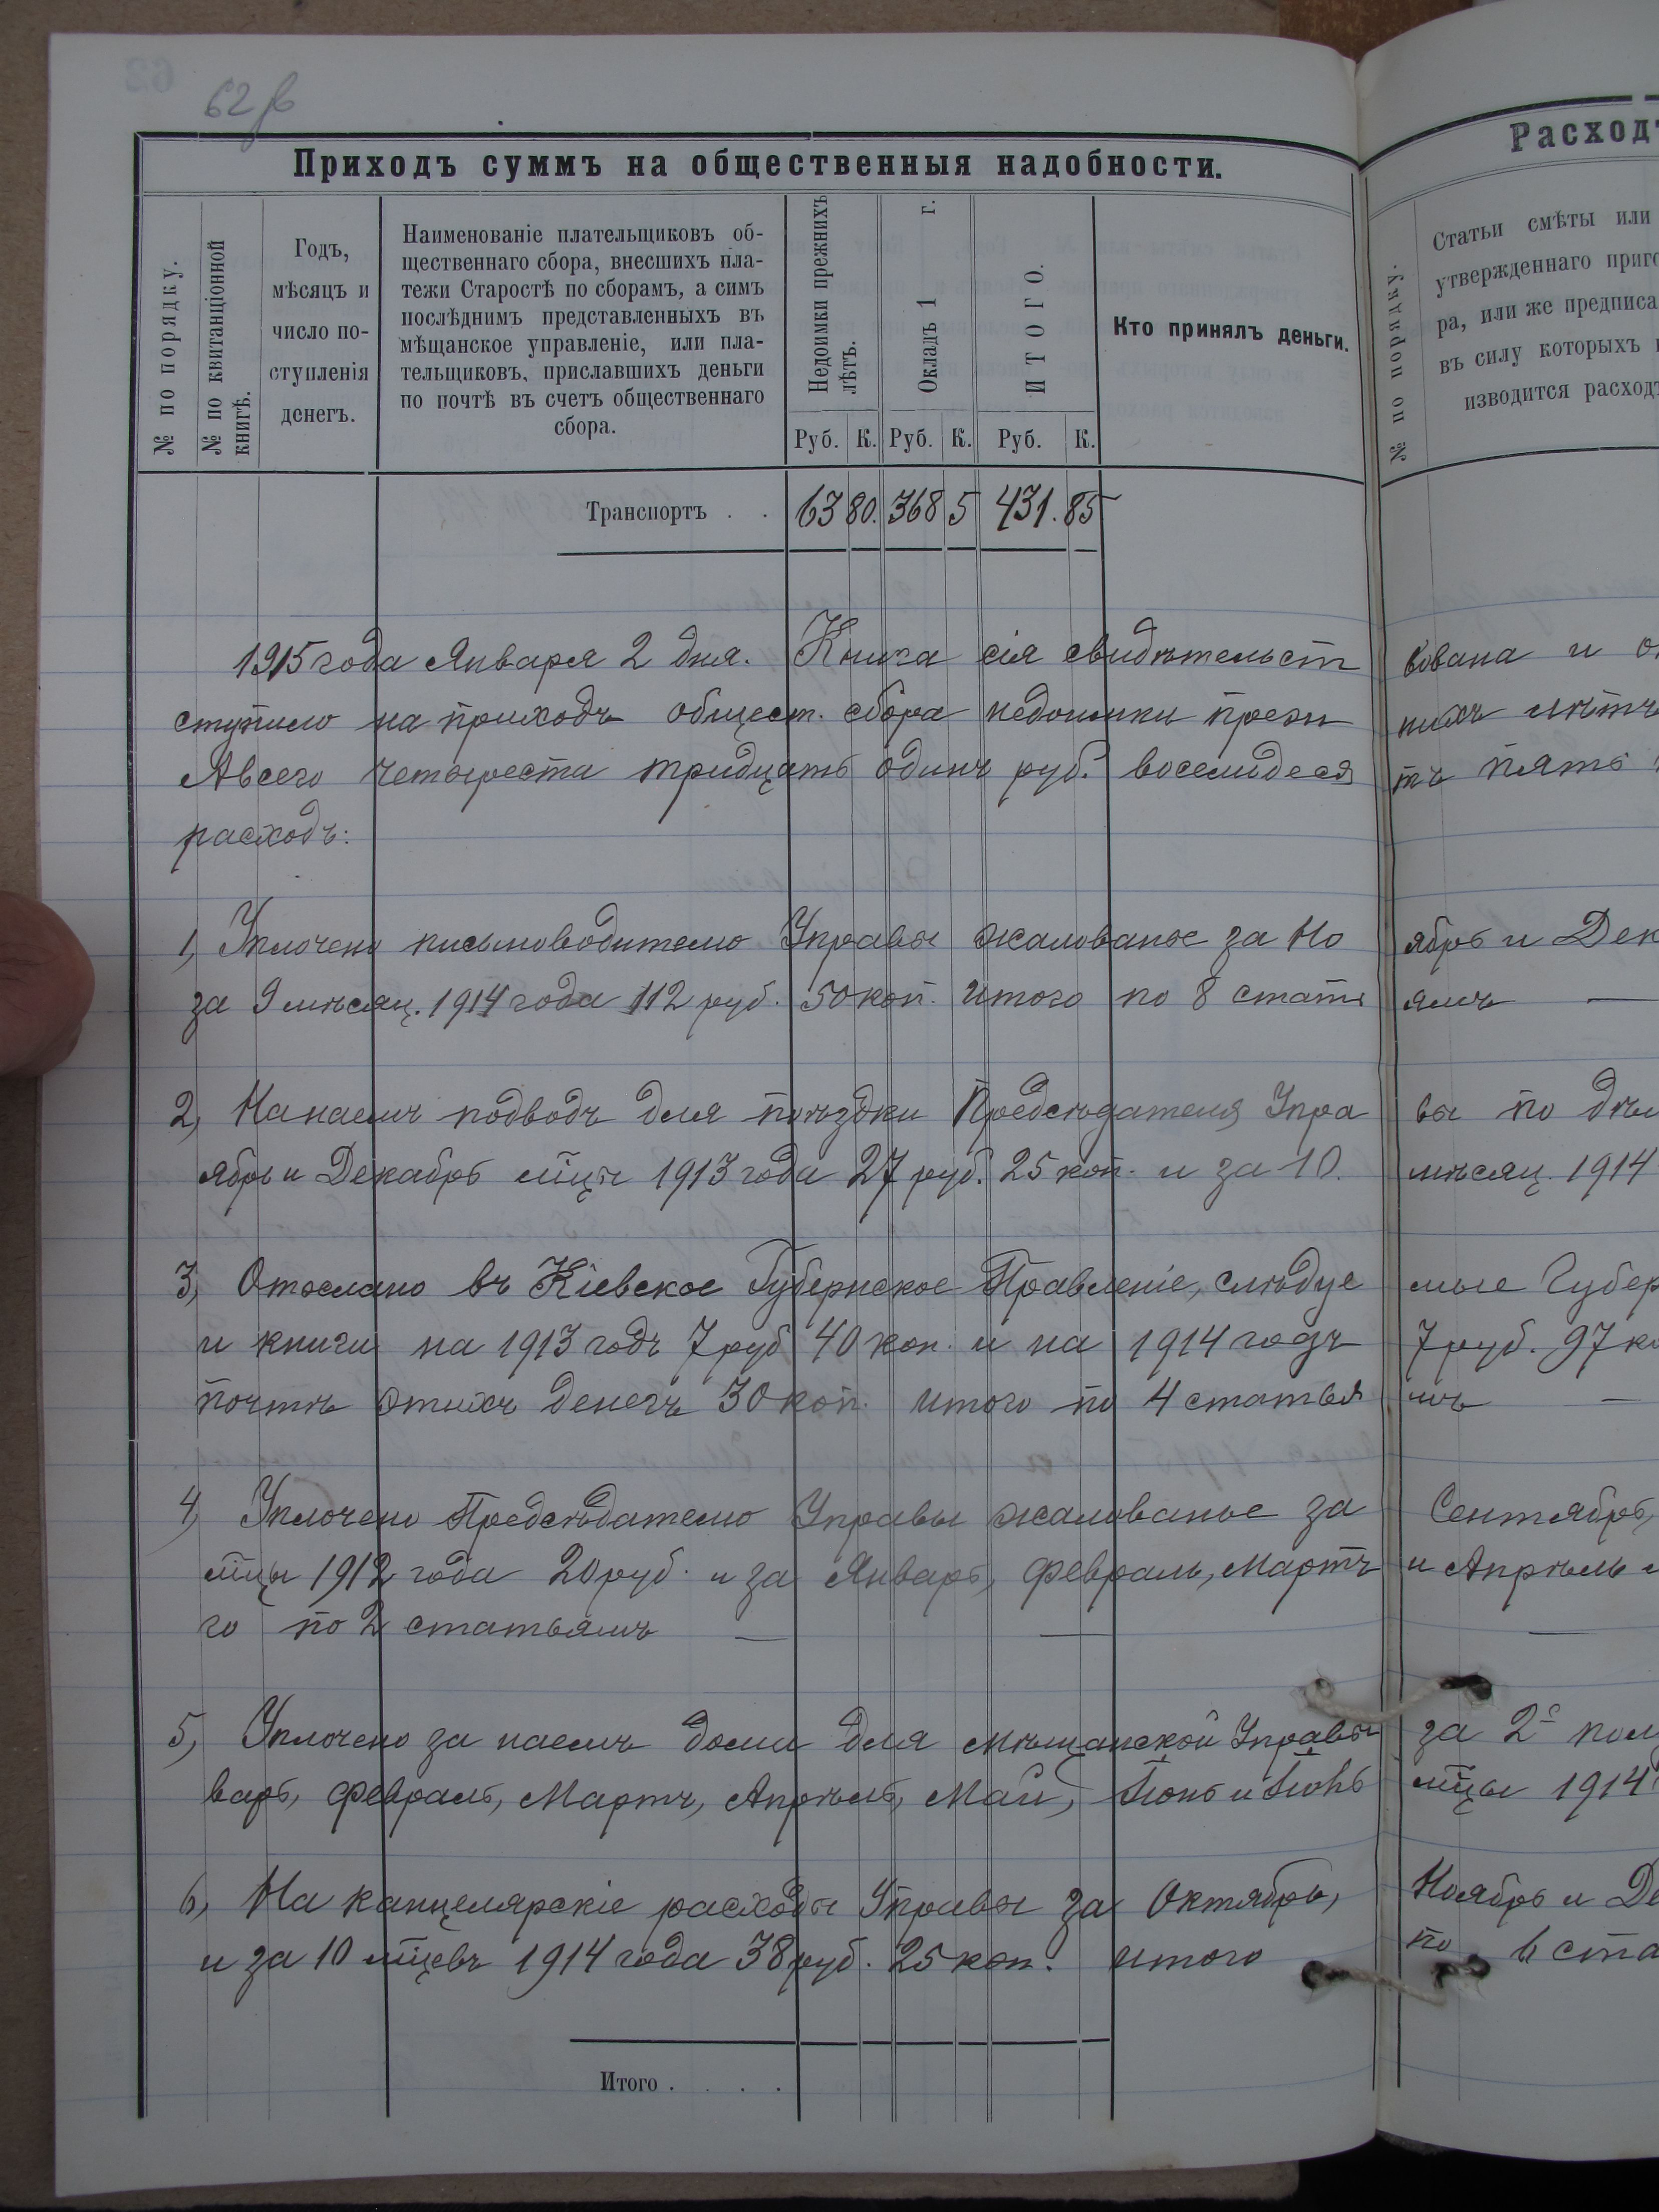 62 в
Приходъ суммъ на общественныя надобности.
№ по порядку.
№ по квитанціонной книгѣ.
Годъ,
мѣсяцъ и
число по-
ступленія
денегъ.
Наименованіе плательщиковъ об-
щественнаго сбора, внесшихъ пла-
тежи Старостѣ по сборамъ, а симъ
послѣднимъ представленныхъ въ
мѣщанское управленіе, или пла-
тельщиковъ, приславшихъ деньги
по почтѣ въ счетъ общественнаго
сбора.
Недоимки прежнихъ лѣтъ.
Окладъ 1 г.
ИТОГО.
Руб. К. Руб. К. Руб. К.
Кто принялъ деньги.
Расходъ
№ по порядку.
Статьи смѣты или
утвержденнаго приго
ра, или же предписа
въ силу которыхъ
изводится расходъ
Транспортъ . . 63 80. 368 5 431. 85
1915 года Января 2 дня. Книга сія свидѣтельст вована и
ступило на приходъ общест. сбора недоимки преж нихъ лѣтъ
А всего четыреста тридцать одинъ руб. восемьдеся тъ пять
расходъ:
1, Уплочено письмоводителю Управы жалованье за Но ябрь и Дек
за 9 мѣсяц. 1914 года 112 руб. 50 коп. итого по 8 стать ямъ —
2, На наемъ подводъ для поѣздки Предсѣдателя Упра вы по дѣл
ябрь и Декабрь мцы 1913 года 27 руб. 25 коп. и за 10. мѣсяц. 1914
3, Отослано въ Кіевское Губернское Правленіе, слѣдуе мые Губер
и книги на 1913 годъ 7 руб 40 коп. и на 1914 годъ 7 руб. 97 ко
почтѣ этихъ денегъ 30 коп. итого по 4 статья мъ —
4, Уплочено Предсѣдателю Управы жалованье за Сентябрь,
мцы 1912 года 20 руб. и за Январь, Февраль, Мартъ и Апрѣль
го по 2 статьямъ — — —
5, Уплочено за наемъ дома для мѣщанской Управы за 2е пол
варь, Февраль, Мартъ, Апрѣль, Май, Іюнь и Іюль мцы 1914
6, На канцелярскіе расходы Управы за Октябрь, Ноябрь и Де
и за 10 мцевъ 1914 года 38 руб. 25 коп. итого по 6 ста
Итого . . . .